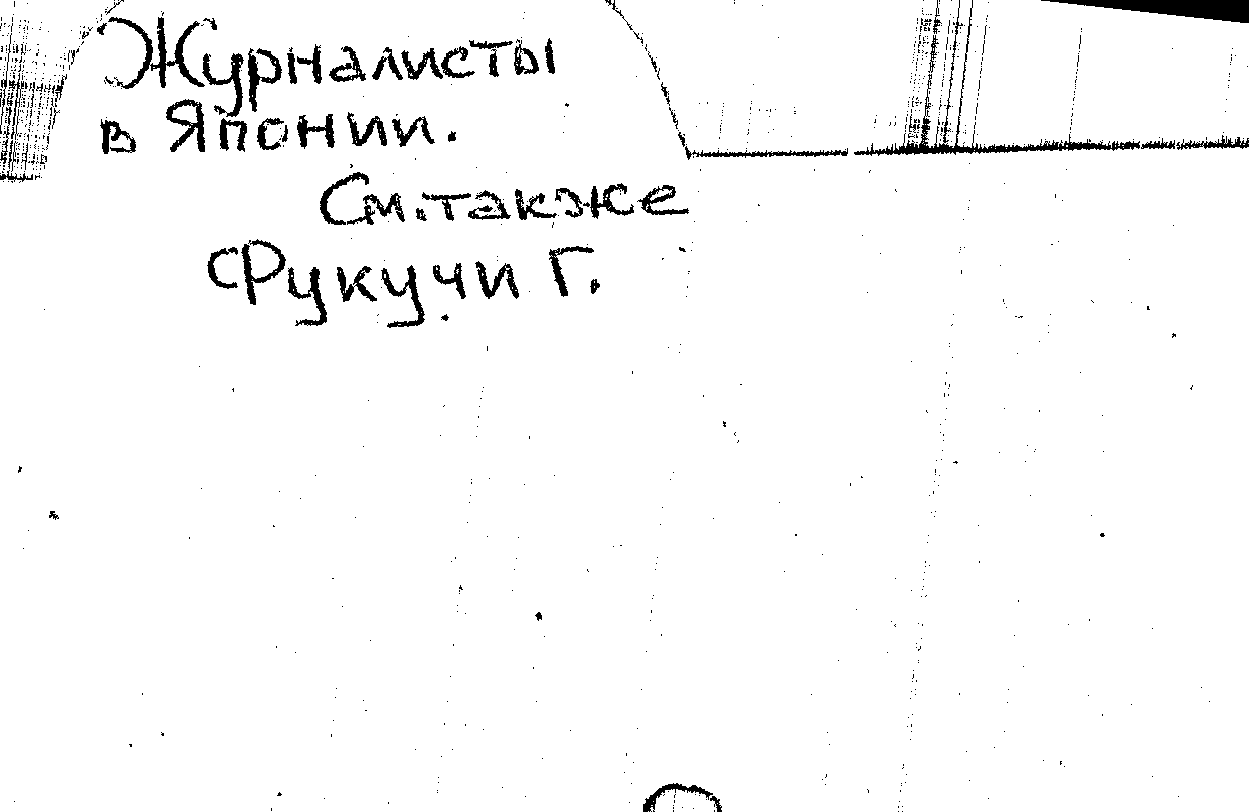 Журналисты
в Японии.
См. также
Фукучи Г.